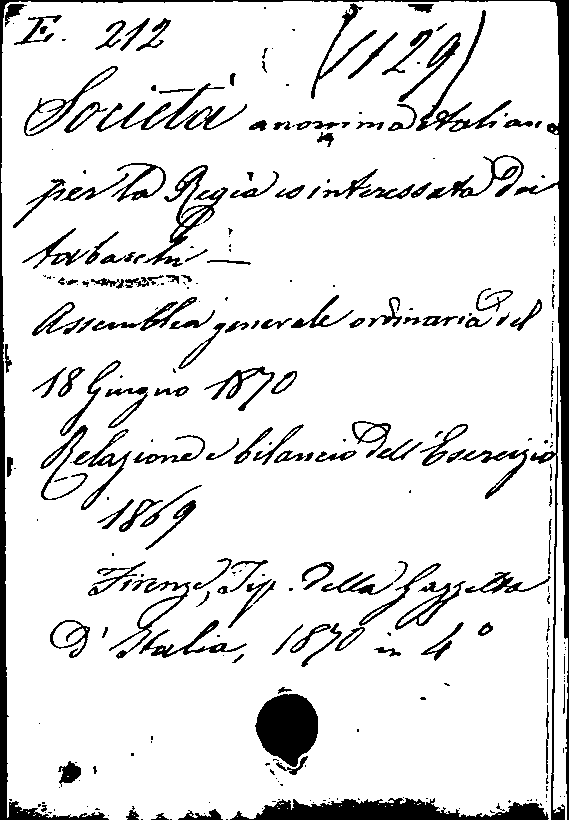 E. 212 (129)
Società anonima italiana
per la Regìa cointeressata dei
tabacchi —
Assemblea generale ordinaria del
18 Giugno 1870
Relazione e bilancio dell'Esercizio
1869
Firenze, Tip. della Gazzetta
D'Italia, 1870 in 4º